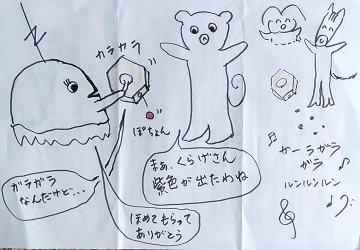 カラカラ
ぽちょん
まぁ、くらげさん
紫色が出たわね
ガラガラ
なんだけど…
ほめてもらって
ありがとう
ガーラガラ
ガラ
ルンルンルン